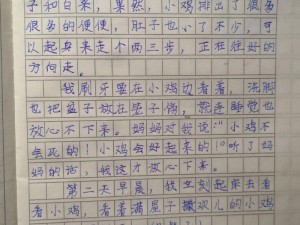 子和白菜，果然，小鸡排出了很多
很多的便便，肚子也小了不少，可
以起身来走个两三步，正在往好的
方向走。
我刷牙罢在小鸡边看着，洗脚
也把盆子放在垫子傍，就连睡觉也
放心不下来。妈妈对我说"小鸡不
会死的！小鸡会好起来的！听了妈
妈的话，我这才放心下来。
第二天早晨，我立刻起来去看
看小鸡，看着满屋子撒欢儿的小鸡